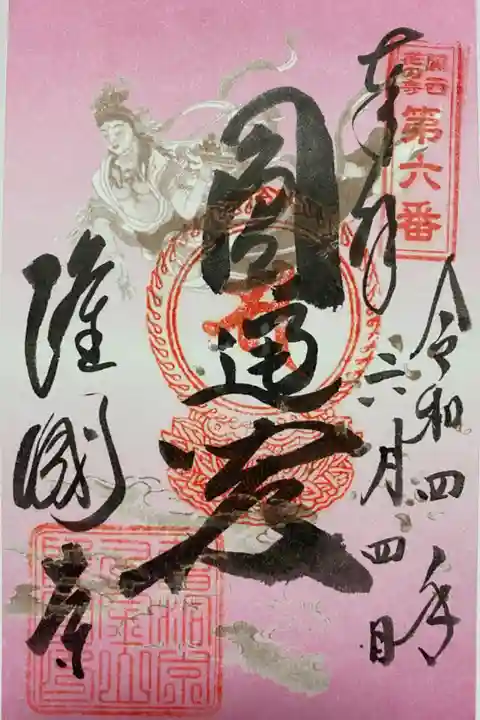 関西
花の寺
第六番
奉拝
令和四年
六月四日
圓通
隆國寺